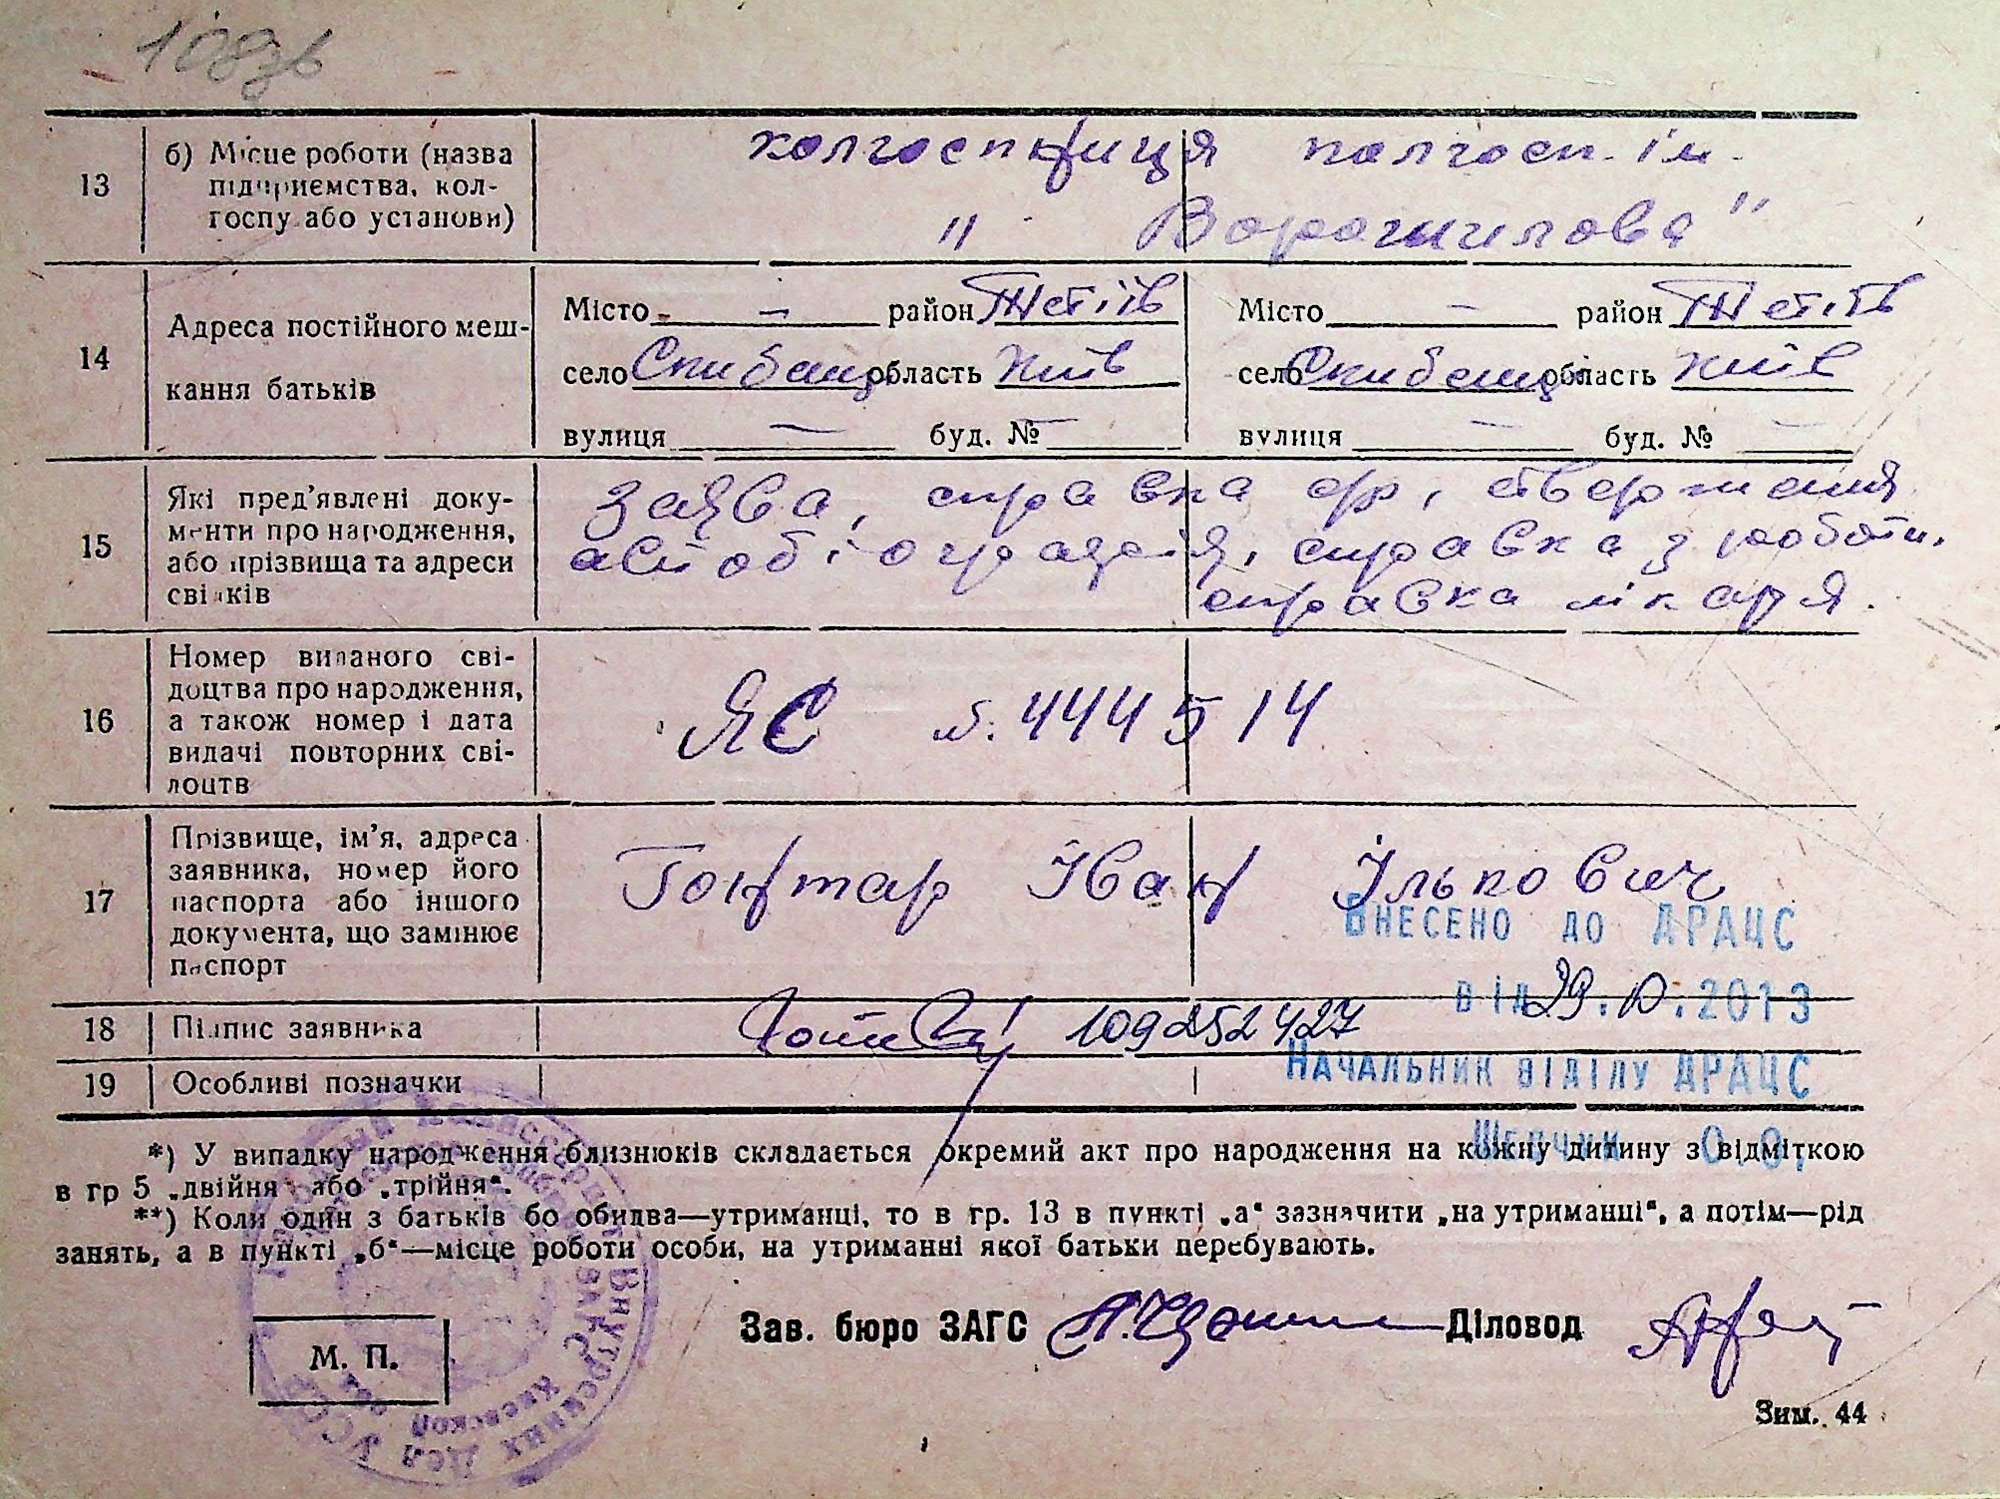 13 б) Місце роботи (назва підприємства, колгоспу або установи)
колгоспниця колгосп. ім.
" Ворошилова"
14 Адреса постійного мешкання батьків
Місто — район Тетіїв Місто — район Тетіїв
село область Київ село область Київ
вулиця — буд. № — вулиця — буд. № —
15 Які пред'явлені документи про народження, або прізвища та адреси свідків
заява, справка ср, ствержения
автобіографія, справка з роботи,
справка лікаря.
16 Номер виданого свідоцтва про народження, а також номер і дата видачі повторних свідоцтв
ЯС №. 444514
17 Прізвище, ім'я, адреса заявника, номер його паспорта або іншого документа, що замінює паспорт
Гонтар Іван Ількович
Внесено до ДРАЦС
від 29.10.2013
18 Підпис заявника
109252427
19 Особливі позначки
Начальник відділу ДРАЦС
О.О.
*) У випадку народження близнюків складається окремий акт про народження на кожну дитину з відміткою
в гр 5 „двійня" або „трійня".
**) Коли один з батьків бо обидва—утриманці, то в гр. 13 в пункті „а" зазначити „на утриманні", а потім—рід
занять, а в пункті „б"—місце роботи особи, на утриманні якої батьки перебувають.
Зав. бюро ЗАГС Діловод
М. П.
Зим. 44